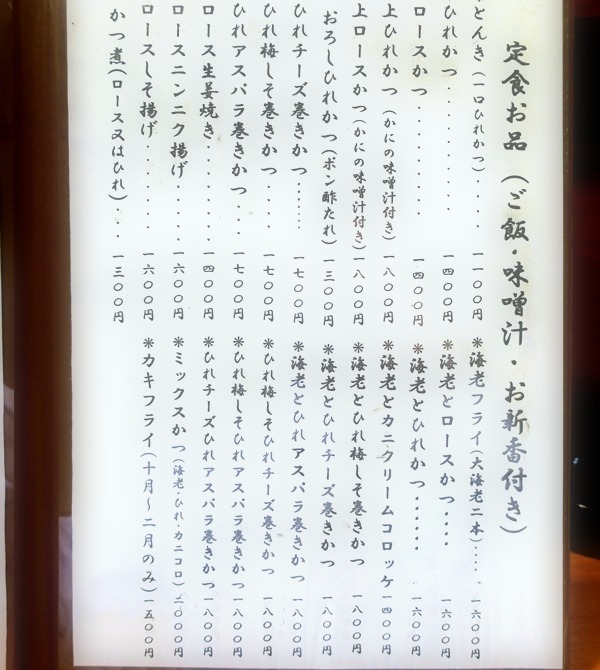 定食お品（ご飯・味噌汁・お新香付き）
とんき（一口ひれかつ）・・一一〇〇円
ひれかつ・・・・・・・・一四〇〇円
ロースかつ・・・・・・・一四〇〇円
上ひれかつ（かにの味噌汁付き）一八〇〇円
上ロースかつ（かにの味噌汁付き）一八〇〇円
おろしひれかつ（ポン酢たれ）一三〇〇円
ひれチーズ巻きかつ・・・・・一七〇〇円
ひれ梅しそ巻きかつ・・・一七〇〇円
ひれアスパラ巻きかつ・・・一七〇〇円
ロース生姜焼き・・・・・一四〇〇円
ロースニンニク揚げ・・・一六〇〇円
ロースしそ揚げ・・・・・一六〇〇円
かつ煮（ロース又はひれ）・・一三〇〇円
※海老フライ（大海老二本）・・・・一六〇〇円
※海老とロースかつ・・・・一六〇〇円
※海老とひれかつ・・・・・一六〇〇円
※海老とカニクリームコロッケ一四〇〇円
※海老とひれ梅しそ巻きかつ一八〇〇円
※海老とひれチーズ巻きかつ一八〇〇円
※海老とひれアスパラ巻きかつ一八〇〇円
※ひれ梅しそひれチーズ巻きかつ一八〇〇円
※ひれ梅しそひれアスパラ巻きかつ一八〇〇円
※ひれチーズひれアスパラ巻きかつ一八〇〇円
※ミックスかつ（海老・ひれ・カニコロ）二〇〇〇円
※カキフライ（十月～二月のみ）一五〇〇円